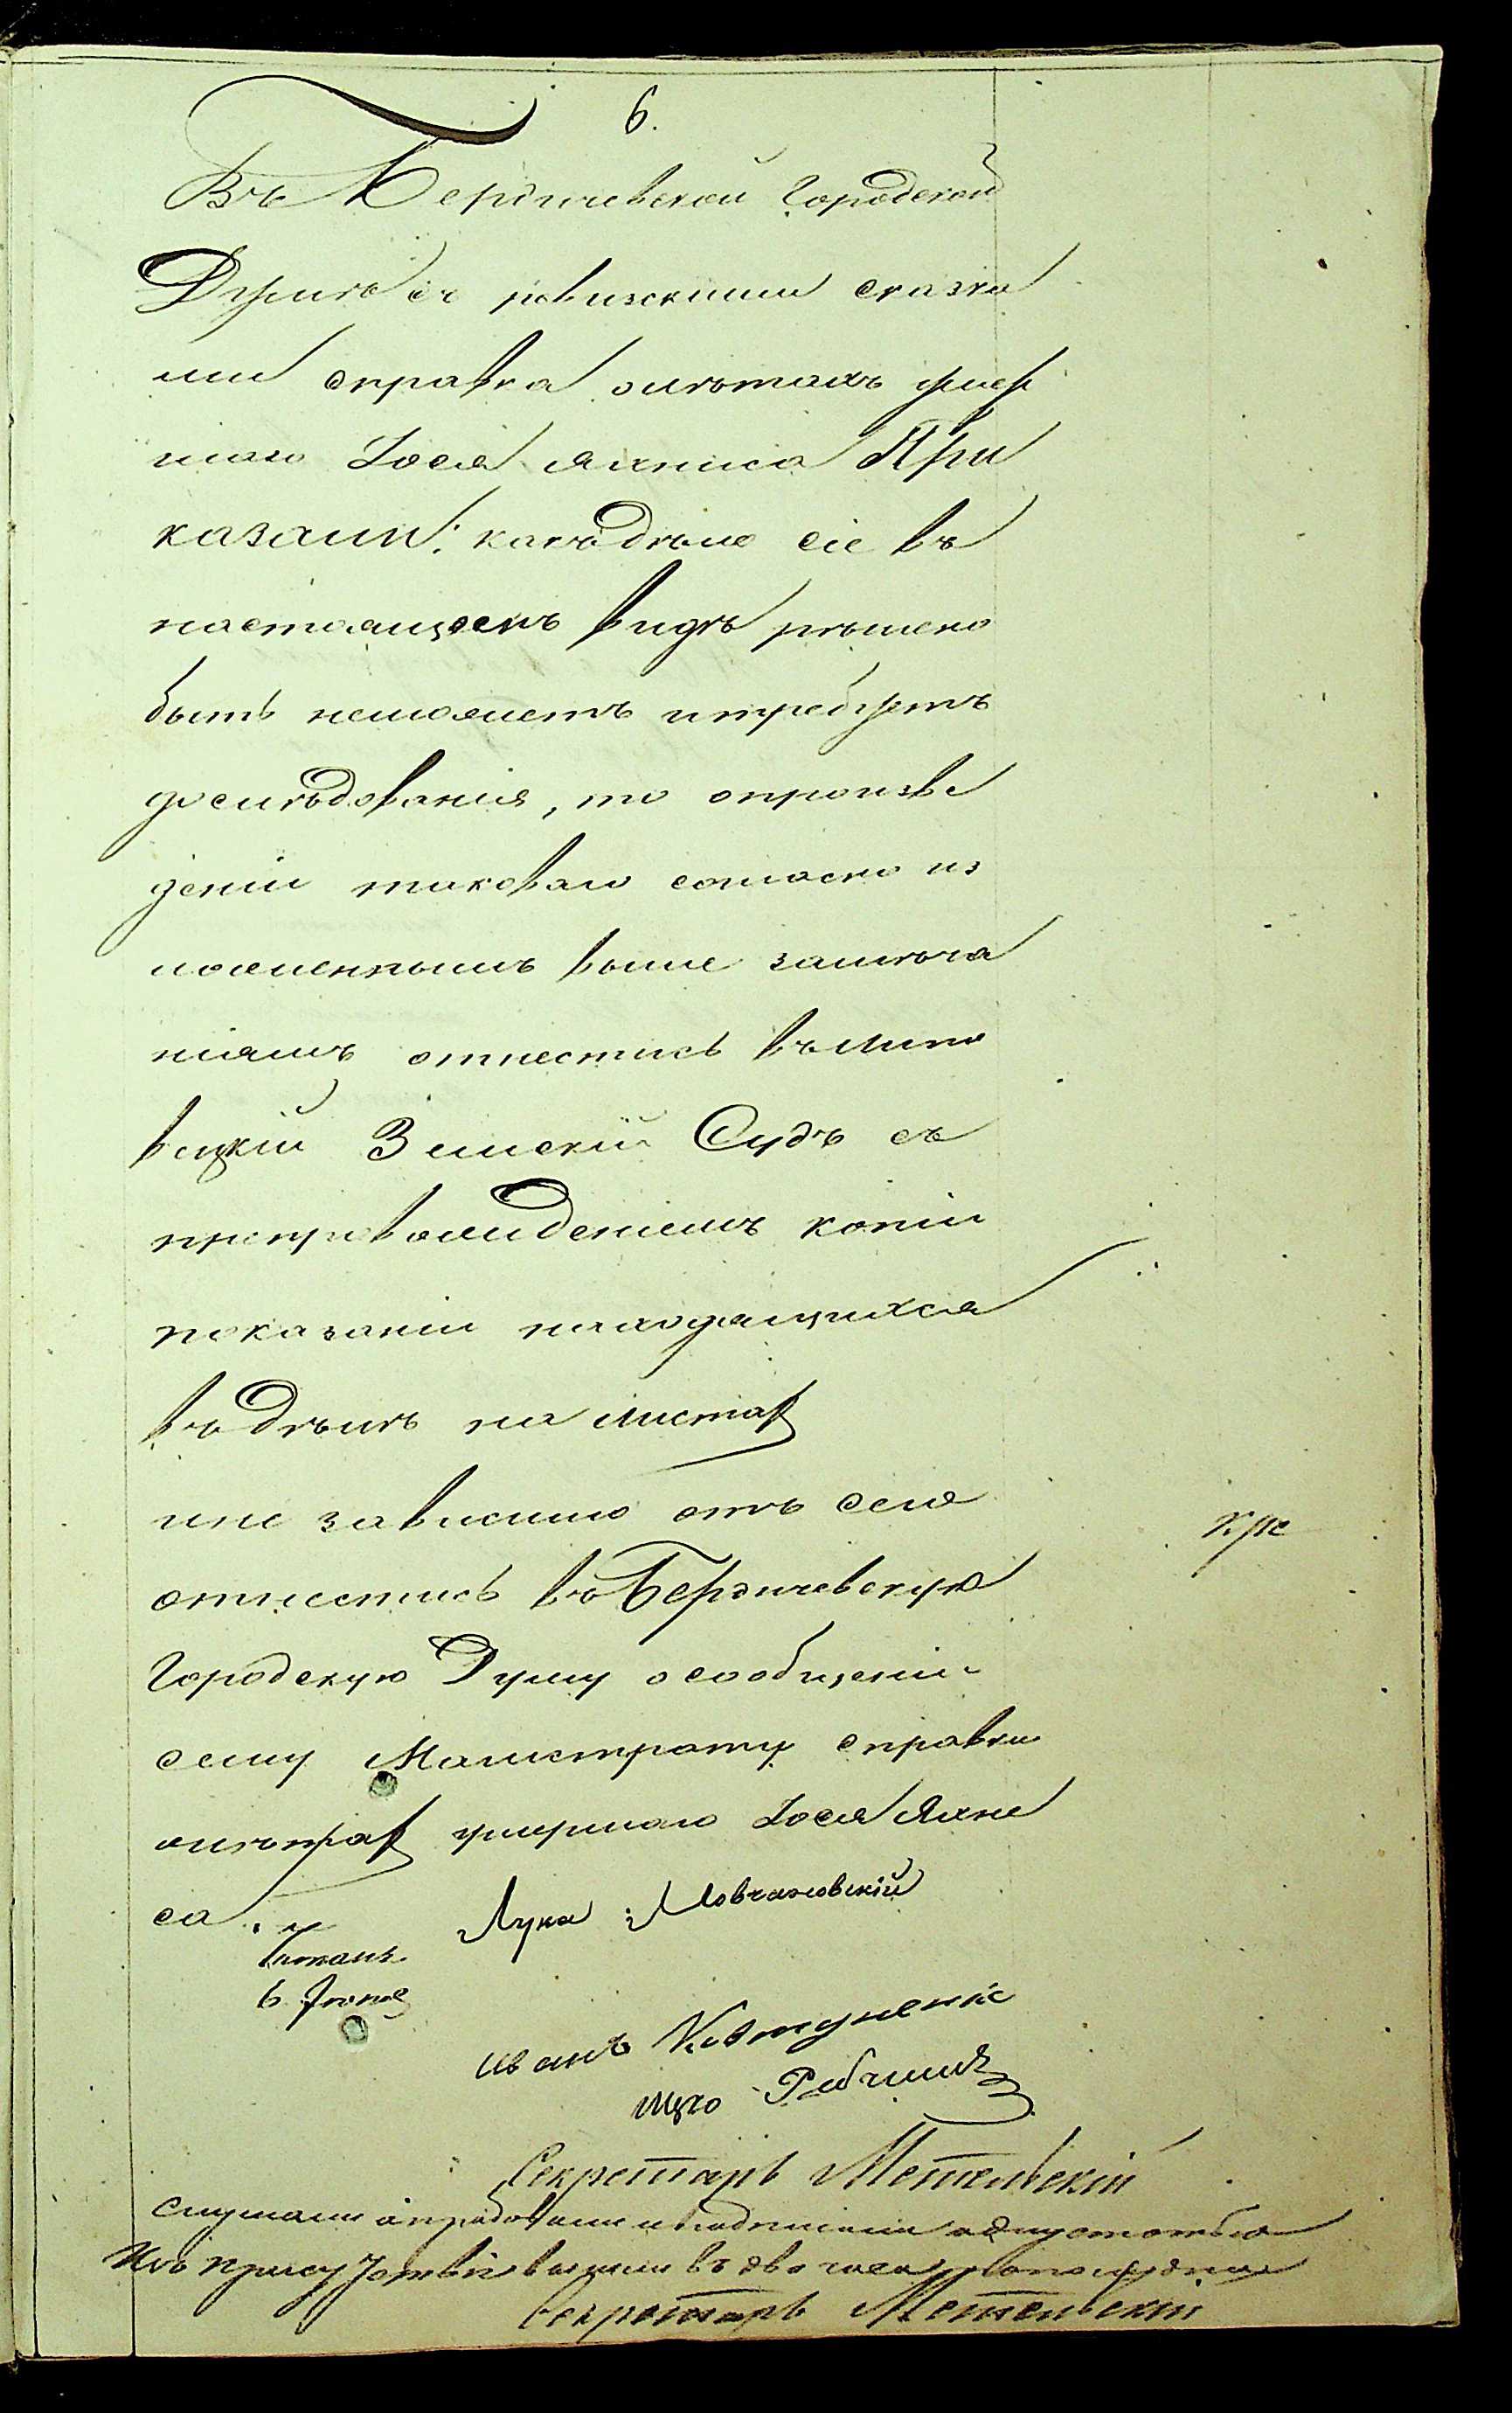 6.
Въ Бердичевской Городской
Думѣ съ ревизскими сказка
ми справка олѣтахъ умер
шаго Іося Яхниса При
казали: какъ дѣло сіе въ
настоящемъ видѣ рѣшено
быть неможетъ итребуетъ
дослѣдованія, то опроизве
деніи таковаго согласно из
ложеннымъ выше замѣча
ніямъ отнестись въ Липо
вецкій Земскій Судъ съ
препровожденіемъ копіи
показаніи находящихся
въ дѣлѣ на листах
ине зависимо отъ сего
отнестись въ Бердичевскую
Городскую Думу осообщеніи
сему Магистрату справки
олѣтах умершаго Іося Яхни
са.
Лука Мовчановскій
6 Іюня
Иванъ Ковтуненко
Секретарь Метельскій
слушали
Изъ присуствія вышли въ два часа пополудни
Секретарь Метельскій